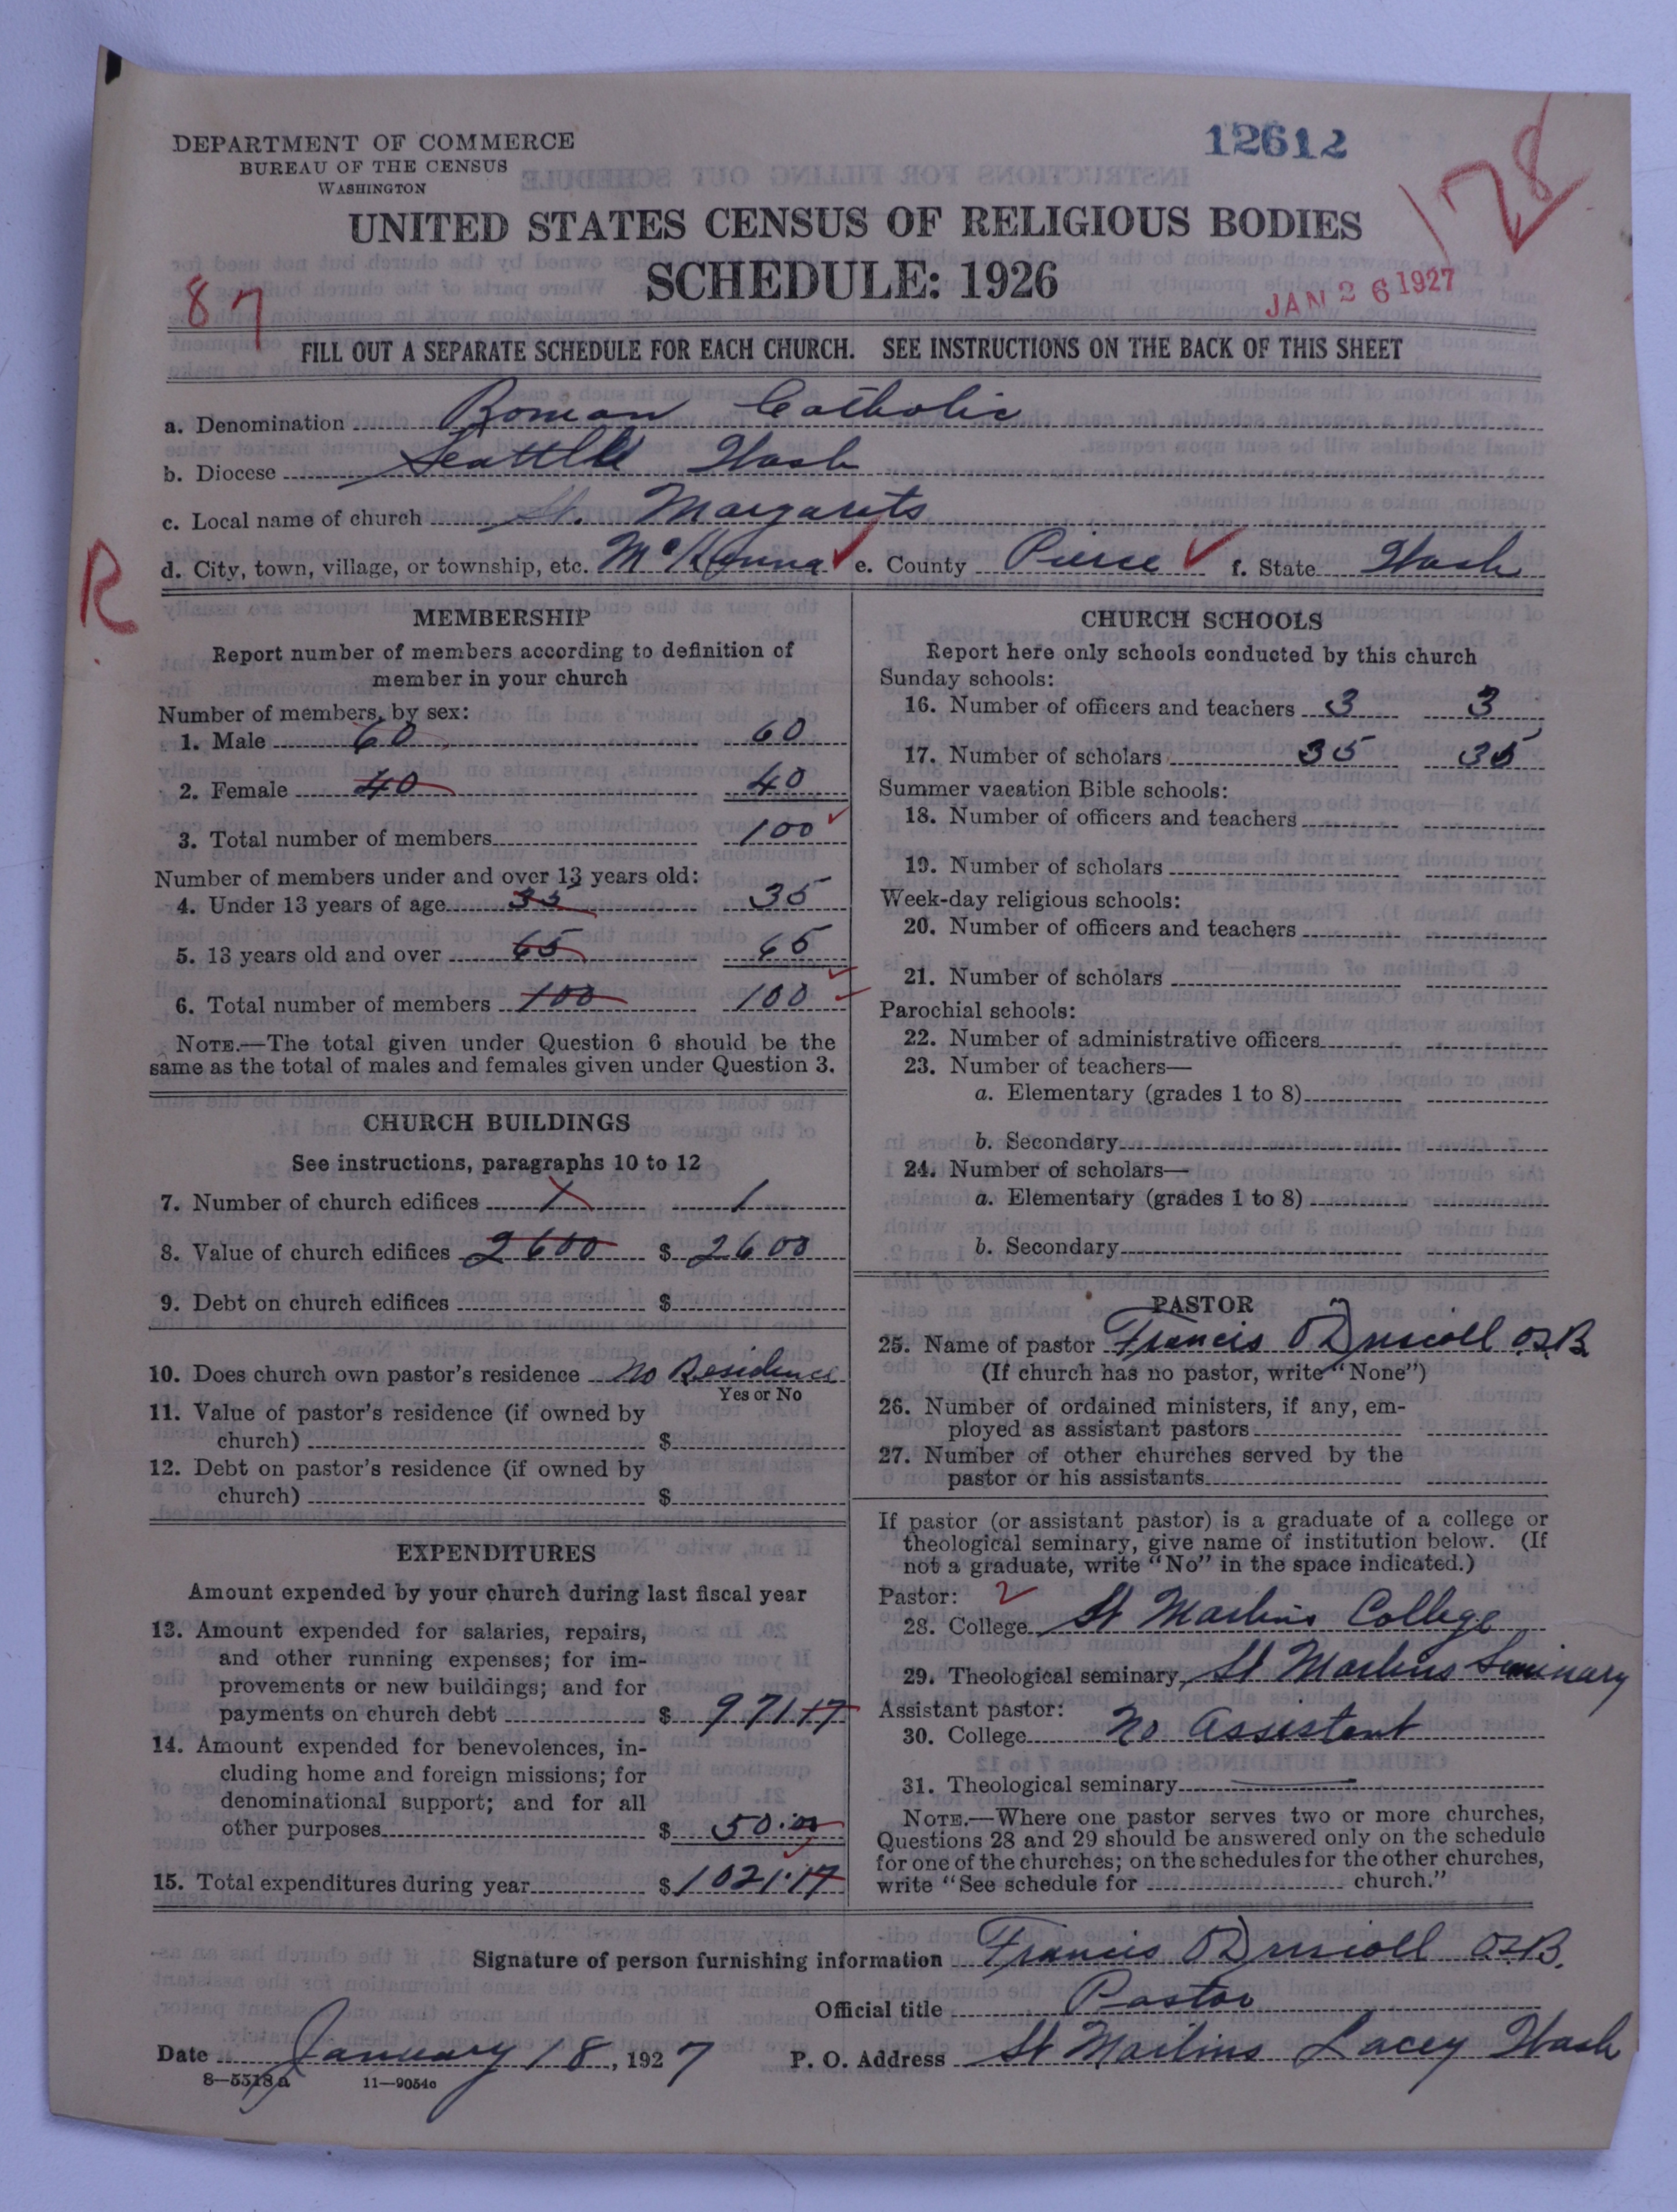 DEPARTMENT OF COMMERCE
BUREAU OF THE CENSUS
WASHINGTON
12612
178
UNITED STATES CENSUS OF RELIGIOUS BODIES
SCHEDULE: 1926
87
JAN 26 1927
FILL OUT A SEPARATE SCHEDULE FOR EACH CHURCH. SEE INSTRUCTIONS ON THE BACK OF THIS SHEET
a. Denomination Roman Catholic
b. Diocese Seattle Wash
c. Local name of church St. Margarets
R
d. City, town, village, or township, etc. McKenna e. County Pierce f. State Wash
MEMBERSHIP
Report number of members according to definition of
member in your church
Number of members, by sex:
1. Male 60 60
2. Female 40 40
3. Total number of members 100
Number of members under and over 13 years old:
4. Under 13 years of age 35 35
5. 13 years old and over 65 65
6. Total number of members 100 100
NOTE.—The total given under Question 6 should be the
same as the total of males and females given under Question 3.
CHURCH BUILDINGS
See instructions, paragraphs 10 to 12
7. Number of church edifices 1 1
8. Value of church edifices 2600 $ 2600
9. Debt on church edifices $
10. Does church own pastor's residence No Residence
Yes or No
11. Value of pastor's residence (if owned by
church) $
12. Debt on pastor's residence (if owned by
church) $
EXPENDITURES
Amount expended by your church during last fiscal year
13. Amount expended for salaries, repairs,
and other running expenses; for im-
provements or new buildings; and for
payments on church debt $ 971.17
14. Amount expended for benevolences, in-
cluding home and foreign missions; for
denominational support; and for all
other purposes $ 50.00
15. Total expenditures during year $ 1021.17
CHURCH SCHOOLS
Report here only schools conducted by this church
Sunday schools:
16. Number of officers and teachers 3 3
17. Number of scholars 35 35
Summer vacation Bible schools:
18. Number of officers and teachers
19. Number of scholars
Week-day religious schools:
20. Number of officers and teachers
21. Number of scholars
Parochial schools:
22. Number of administrative officers
23. Number of teachers—
a. Elementary (grades 1 to 8)
b. Secondary
24. Number of scholars—
a. Elementary (grades 1 to 8)
b. Secondary
PASTOR
25. Name of pastor Francis O'Driscoll O.S.B.
(If church has no pastor, write "None")
26. Number of ordained ministers, if any, em-
ployed as assistant pastors
27. Number of other churches served by the
pastor or his assistants
If pastor (or assistant pastor) is a graduate of a college or
theological seminary, give name of institution below. (If
not a graduate, write "No" in the space indicated.)
Pastor: 2
28. College St Martins College
29. Theological seminary St Martins Seminary
Assistant pastor:
30. College No Assistant
31. Theological seminary
NOTE.—Where one pastor serves two or more churches,
Questions 28 and 29 should be answered only on the schedule
for one of the churches; on the schedules for the other churches,
write "See schedule for church."
Signature of person furnishing information Francis O'Driscoll O.S.B.
Official title Pastor
Date January 18, 1927 P. O. Address St Martins Lacey Wash
8—5518a 11—9054c